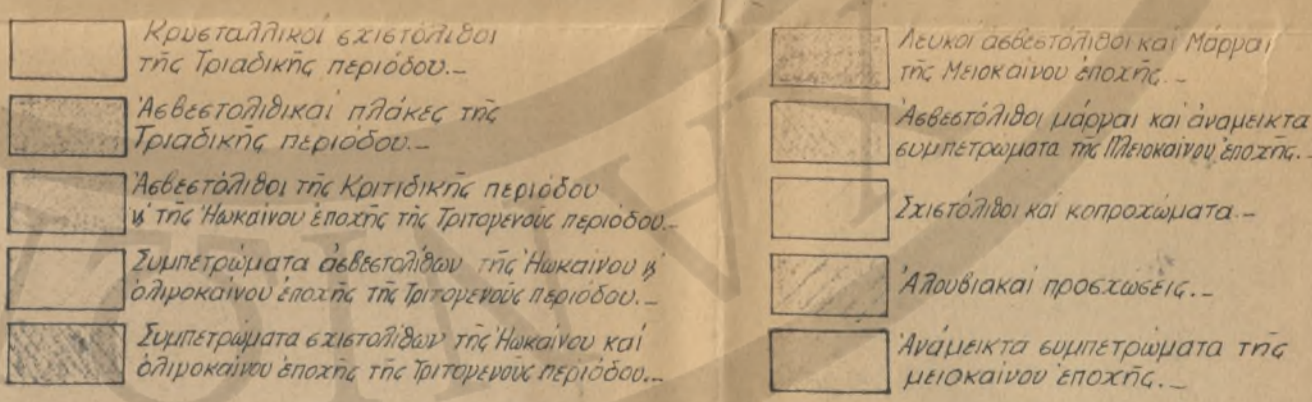 Κρυσταλλικοί σχιστόλιθοι
τῆς Τριαδικῆς περιόδου._
Ἀσβεστολιθικαί πλάκες τῆς
Τριαδικῆς περιόδου._
Ἀσβεστόλιθοι τῆς Κριτιδικῆς περιόδου
ϗ τῆς Ἡωκαίνου ἐποχῆς τῆς Τριτογενοῦς περιόδου._
Συμπετρώματα ἀσβεστολίθων τῆς Ἡωκαίνου ϗ
ὀλιγοκαίνου ἐποχῆς τῆς Τριτογενοῦς περιόδου._
Συμπετρώματα σχιστολίθων τῆς Ἡωκαίνου καί
ὀλιγοκαίνου ἐποχῆς τῆς Τριτογενοῦς περιόδου._
Λευκοί ἀσβεστόλιθοι καί Μάργαι
τῆς Μειοκαίνου ἐποχῆς._
Ἀσβεστόλιθοι μάργαι καί ἀνάμεικτα
συμπετρώματα τῆς Πλειοκαίνου ἐποχῆς._
Σχιστόλιθοι καί κοπροχώματα._
Ἀλουβιακαί προσχώσεις._
Ἀνάμεικτα συμπετρώματα τῆς
μειοκαίνου ἐποχῆς._